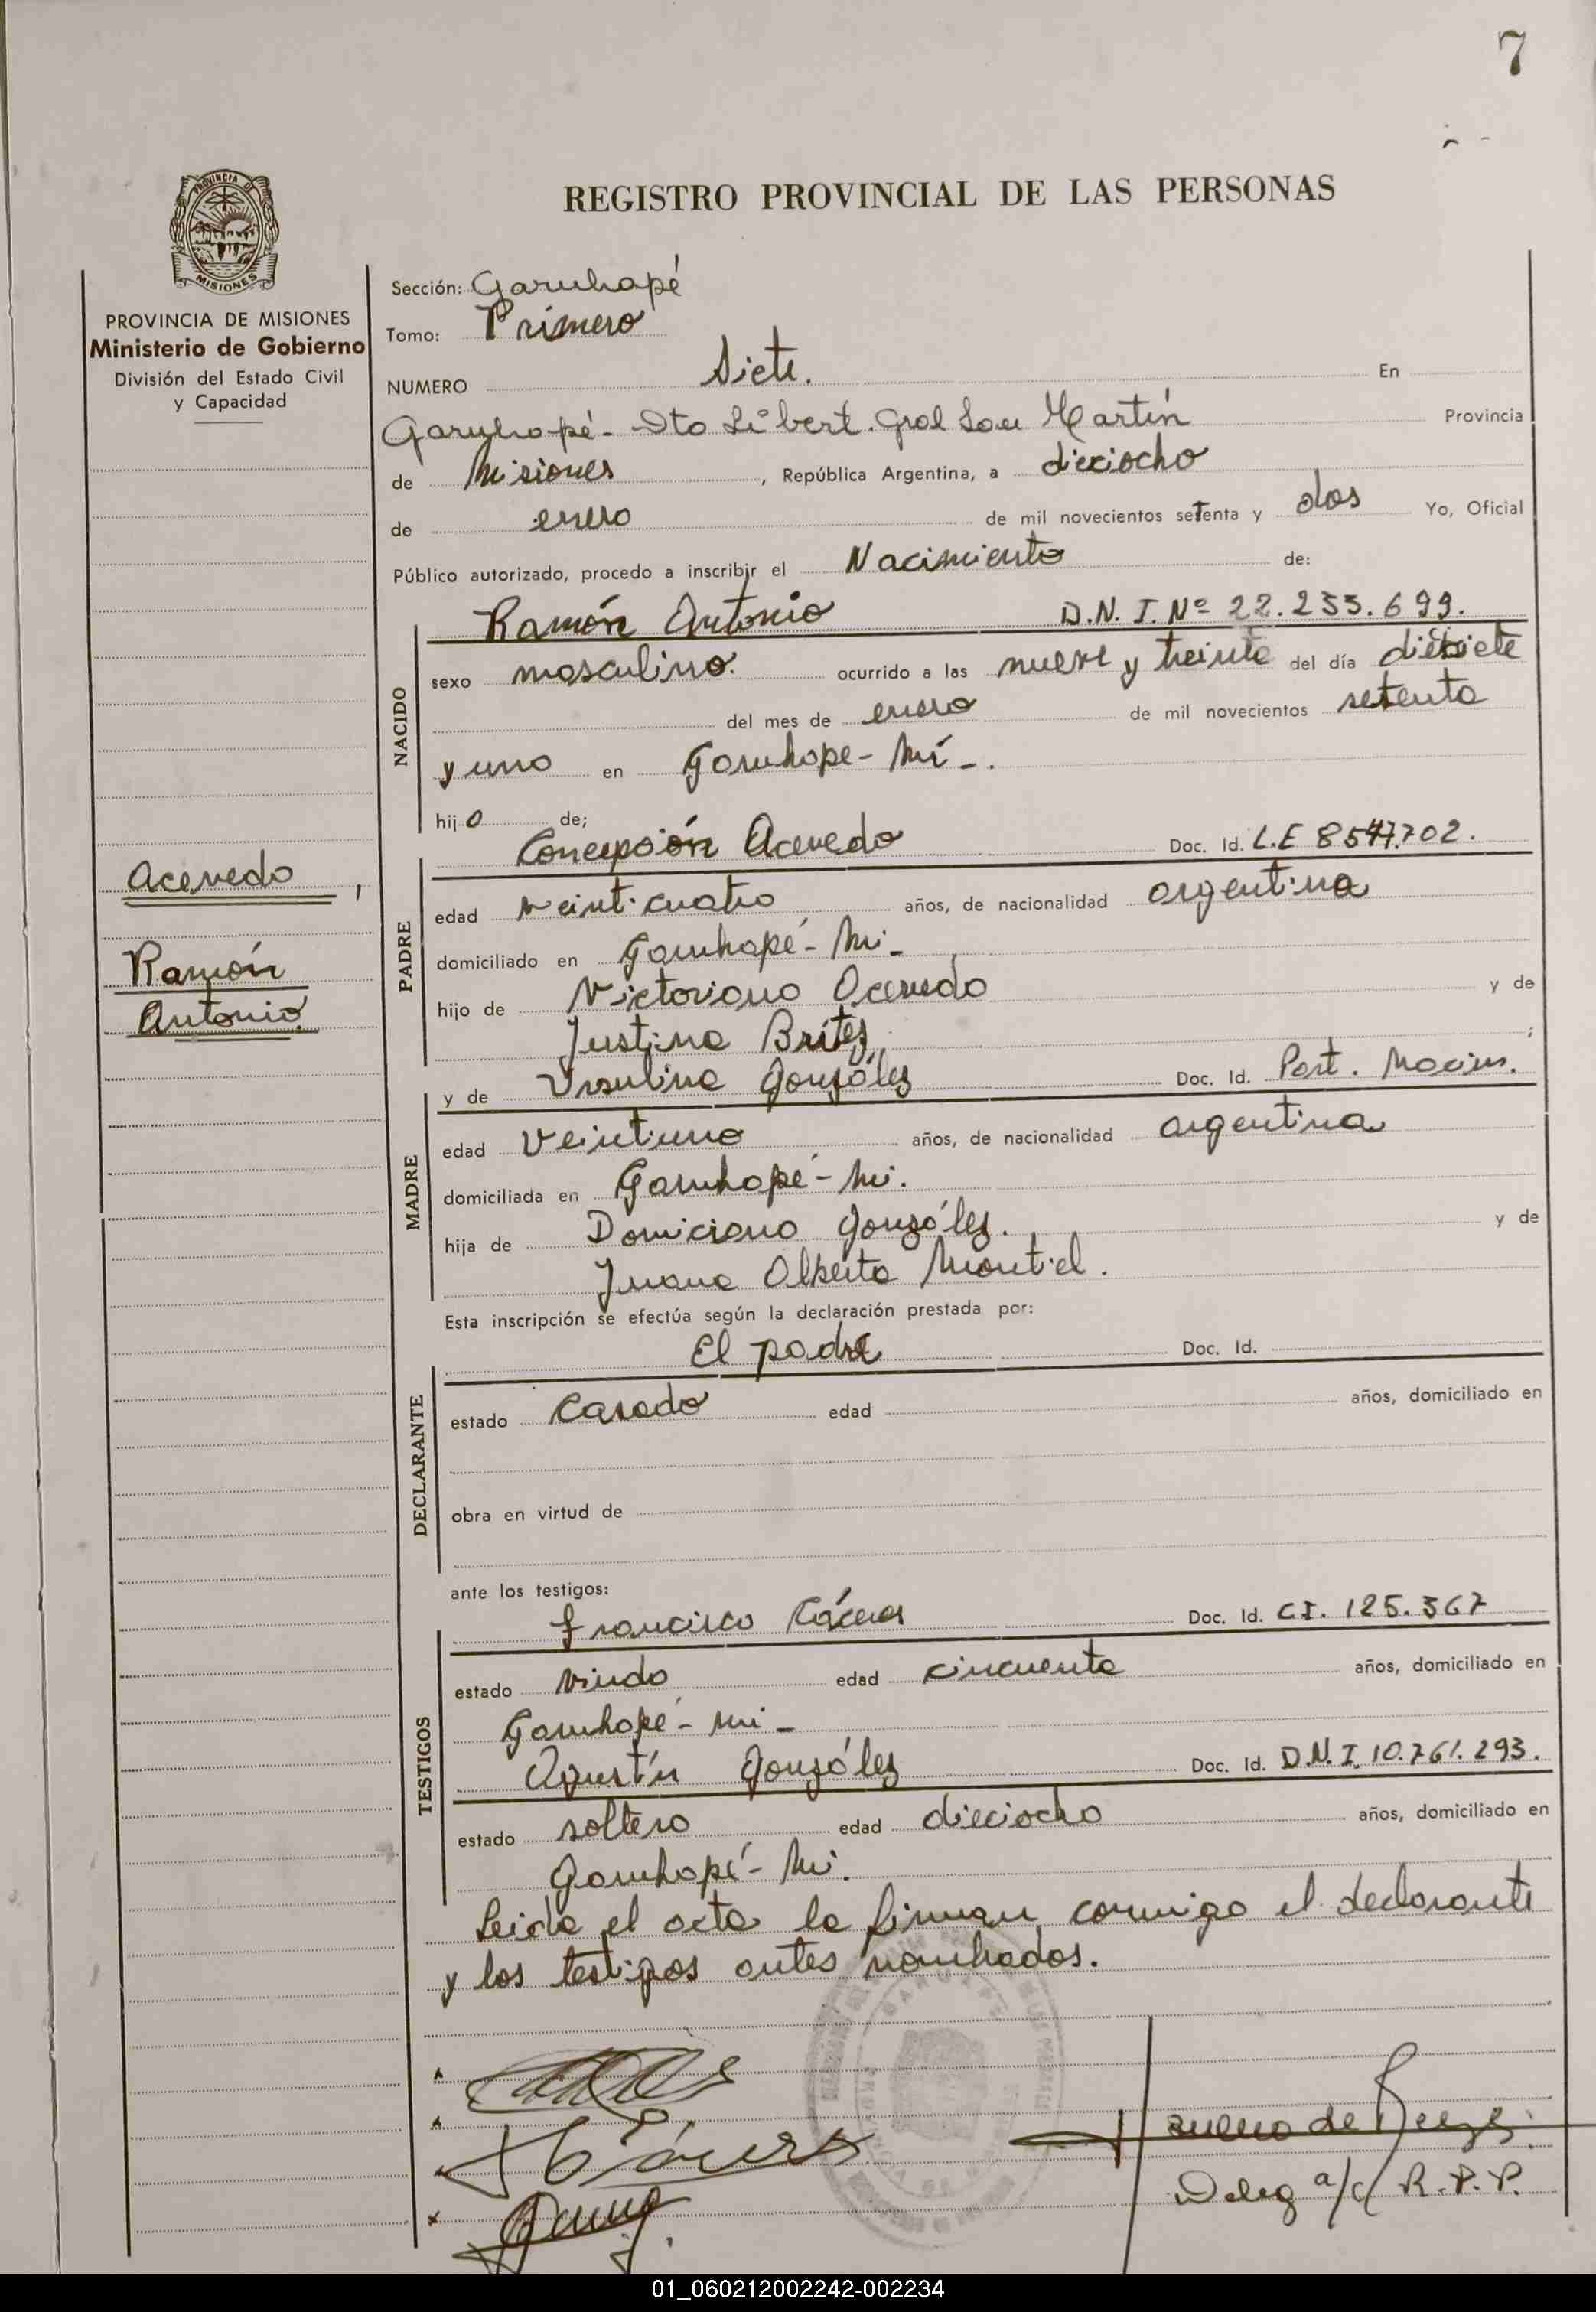 7
REGISTRO PROVINCIAL DE LAS PERSONAS
PROVINCIA DE
MISIONES
PROVINCIA DE MISIONES
Ministerio de Gobierno
División del Estado Civil
y Capacidad
Acevedo,
Ramón
Antonio
Sección: Garuhapé
Tomo: Primero
NUMERO Siete. En
Garuhapé - Dto Libert. Gral San Martín Provincia
de Misiones, República Argentina, a dieciocho
de enero de mil novecientos setenta y dos Yo, Oficial
Público autorizado, procedo a inscribir el Nacimiento de:
NACIDO
Ramón Antonio D.N.I. Nº 22.255.699.
sexo masculino. ocurrido a las nueve y treinta del día diecisiete
del mes de enero de mil novecientos setenta
y uno en Garuhape - Mi - .
hijo de;
PADRE
Concepción Acevedo Doc. Id. L.E 8547.702.
edad veinticuatro años, de nacionalidad argentina
domiciliado en Garuhapé - Mi -
hijo de Victoriano Acevedo y de
Justina Brítez ;
MADRE
y de Ursulina Gonzáles Doc. Id. Part. Nacim.
edad Veintiuno años, de nacionalidad argentina
domiciliada en Garuhapé - Mi.
hija de Domiciano Gonzáles. y de
Juana Alberta Montiel.
Esta inscripción se efectúa según la declaración prestada por:
DECLARANTE
El padre Doc. Id.
estado Casado edad años, domiciliado en
obra en virtud de
ante los testigos:
TESTIGOS
Francisco Cáceres Doc. Id. C.I. 125.367
estado viudo edad cincuenta años, domiciliado en
Garuhapé - Mi -
Agustín Gonzáles Doc. Id. D.N.I. 10.761.293.
estado soltero edad dieciocho años, domiciliado en
Garuhapé - Mi.
Leída el acta la firman conmigo el declarante
y los testigos antes nombrados.
Deleg a/c R.P.P.
01_060212002242-002234